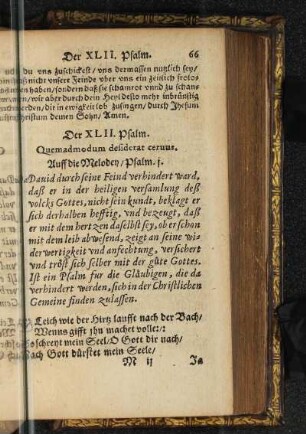 Der XLII. Psalm. 66
du vns zuschickest / vns dermassen nutzlich sey /
nicht vnsere Feinde vber vns ein zeitlich frolo-
haben / sondern daß sie schamrot vnnd zu schan-
wir aber durch dein Heyl desto mehr inbrünstig
werden / dir in ewigkeit lob zusingen / durch Jhesum
Christum deinen Sohn / Amen.
Der XLII. Psalm.
Quemadmodum desiderat ceruus.
Auff die Melodey / Psalm. j.
Dauid durch seine Feind verhindert ward,
daß er in der heiligen versamlung deß
volcks Gottes, nicht sein kundt, beklagt er
sich derhalben hefftig, vnd bezeugt, daß
er mit dem hertzen daselbst sey, ob er schon
mit dem leib abwesend, zeigt an seine wi-
derwertigkeit vnd anfechtung, versichert
vnd tröst sich selber mit der güte Gottes.
Ist ein Psalm für die Gläubigen, die da
verhindert werden, sich in der Christlichen
Gemeine finden zulassen.
Gleich wie der Hirtz laufft nach der Bach /
Wenns gifft jhn machet volle: /:
So schreyt mein Seel / O Gott dir nach /
Nach Gott dürstet mein Seele /
M ij Ja